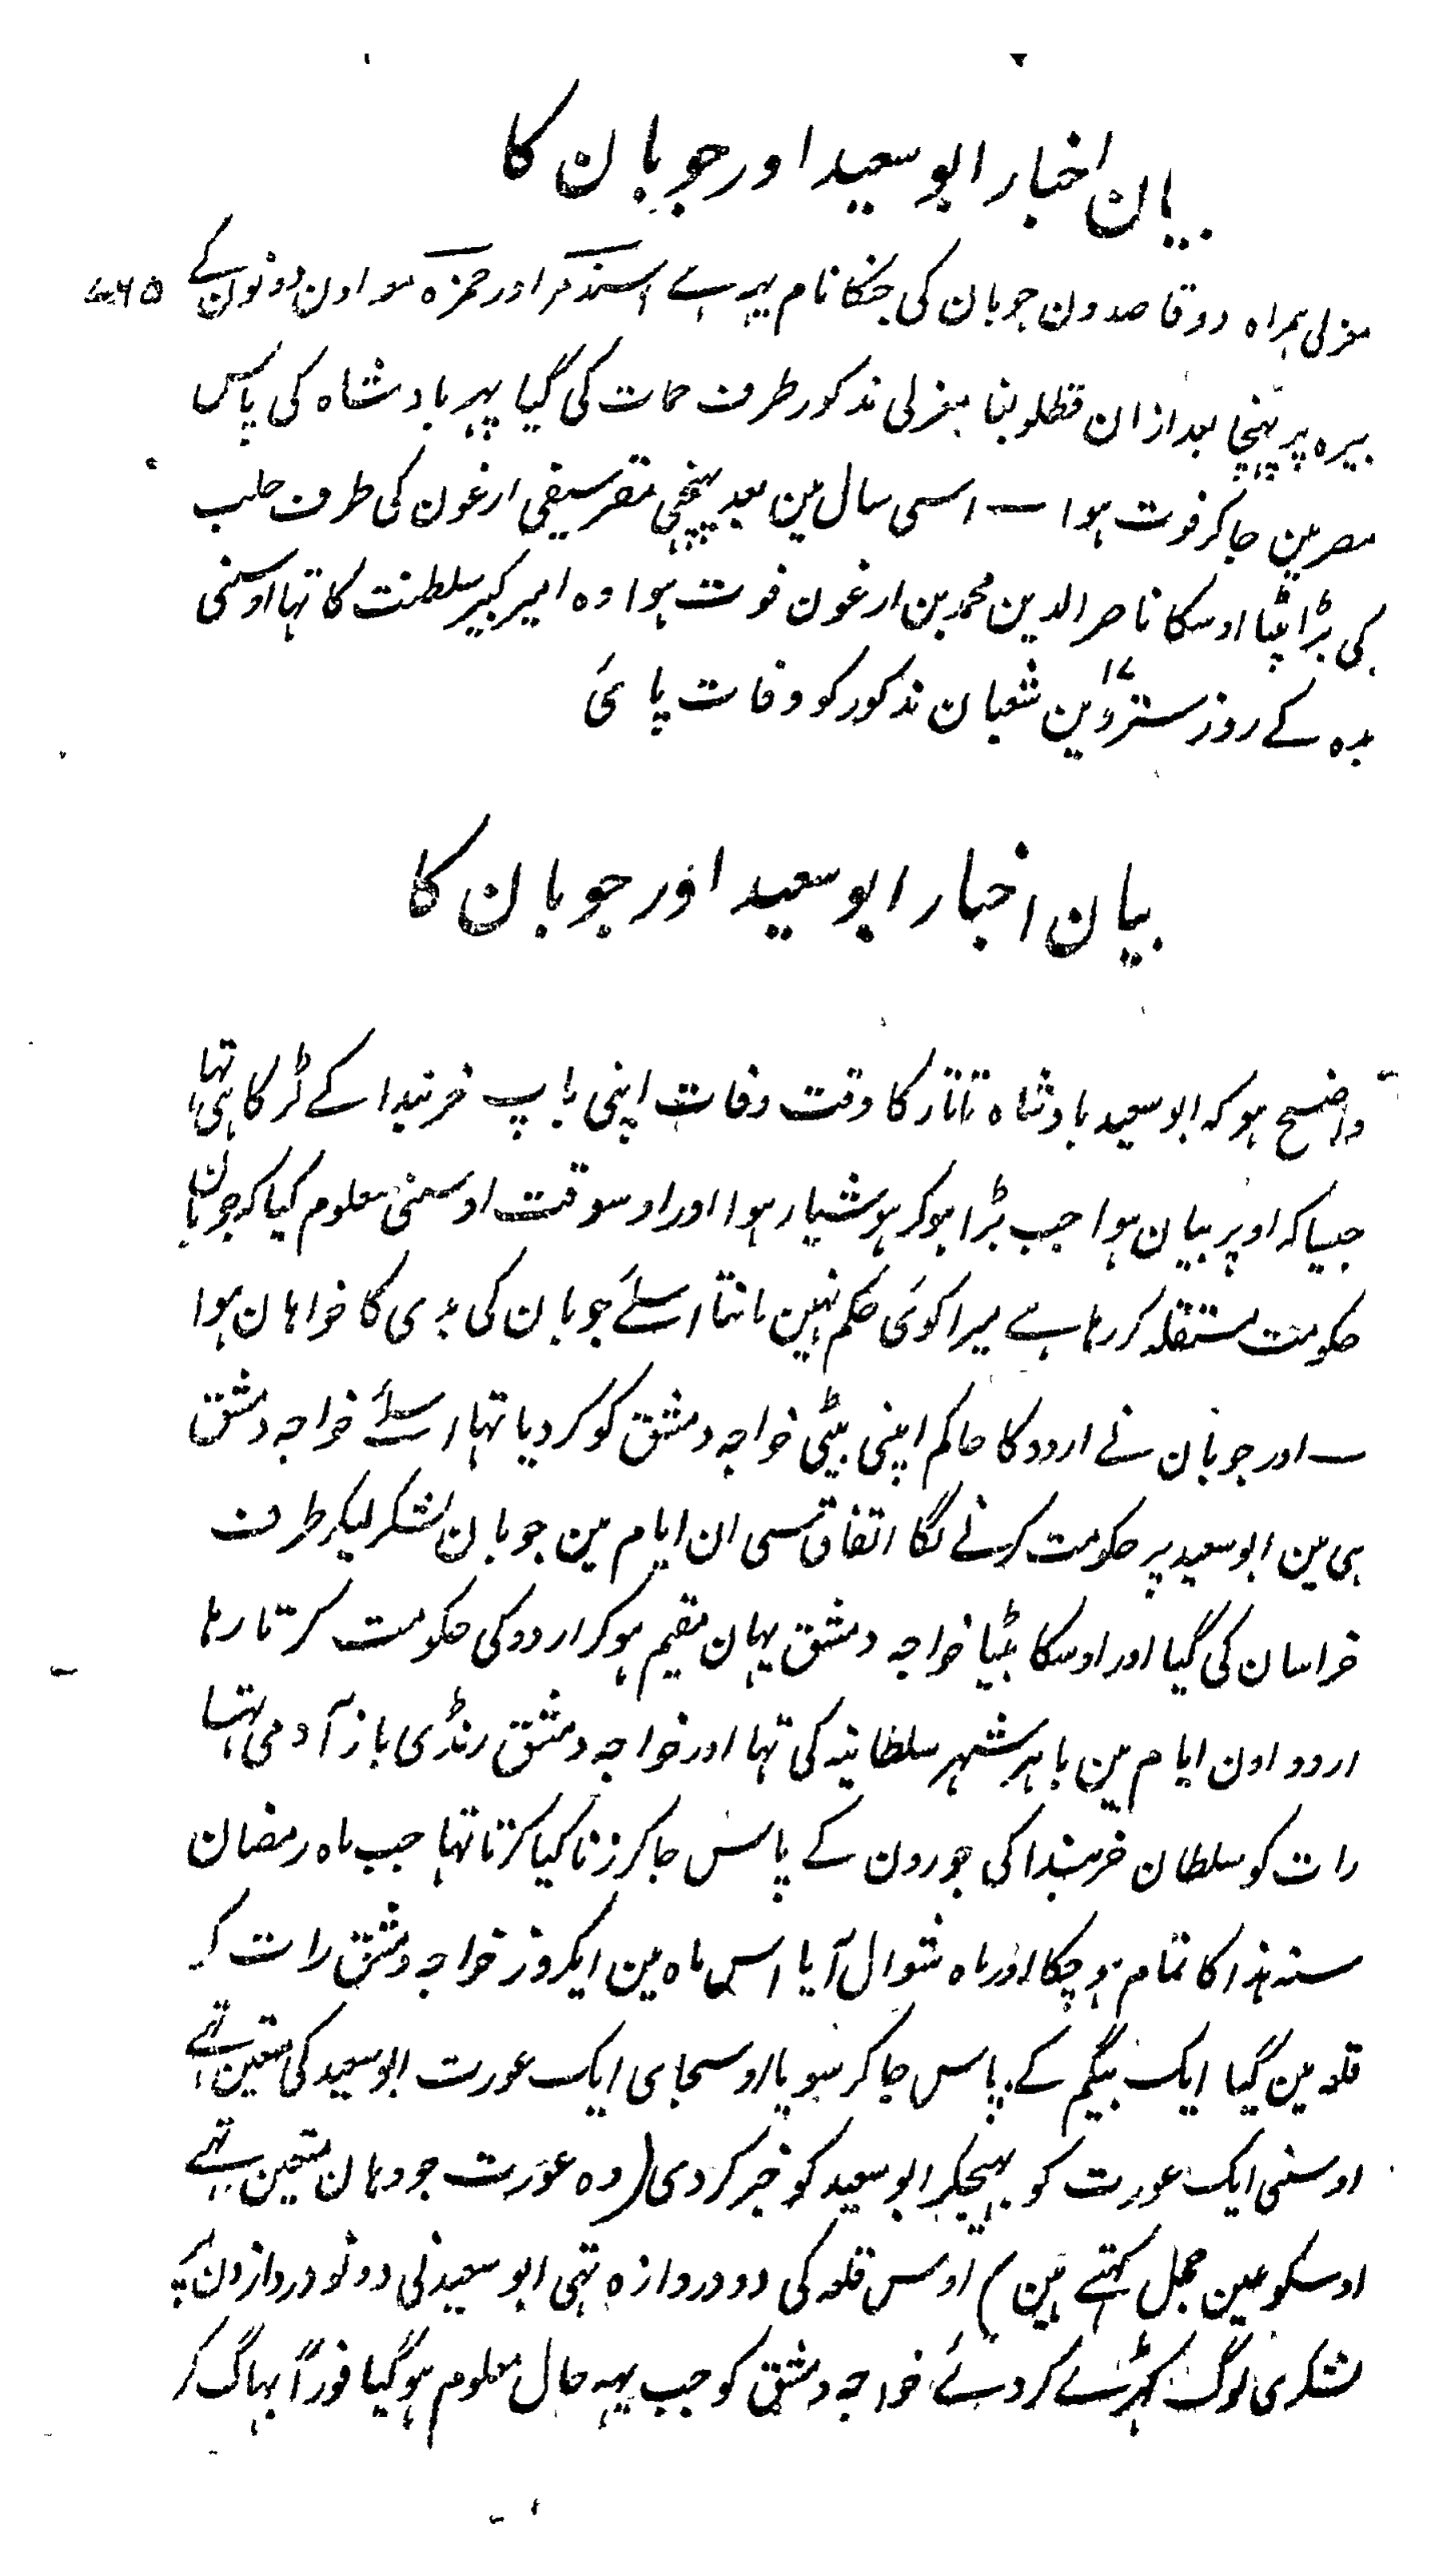 بیان اخبار ابو سعید اور جوبان کا
۷۶۵
مغلی ہمراہ دو قاصدون جوبان کی جنکا نام یہہ ہے اسندمر اور حمزہ معہ اون دونون کے
بیرہ پر پہنچا بعد ازان قطلوبغا مغلی مذکور طرف حمات کی گیا پہر بادشاہ کی پاس
مصر مین جا کر فوت ہوا ــ اسی سال مین بعد پہنچنی مقر سیفی ارغون کی طرف حلب
کی بڑا بیٹا اوسکا ناصر الدین محمد بن ارغون فوت ہوا وہ امیر کبیر سلطنت کا تہا اوسنی
بدہ کے روز سترہوین ۱۷ شعبان مذکور کو وفات پائی
بیان اخبار ابو سعید اور جوبان کا
واضح ہو کہ ابو سعید بادشاہ تاتار کا وقت وفات اپنی باپ خربندا کے لڑکا ہی تہا
جیسا کہ اوپر بیان ہوا جب بڑا ہو کر ہوشیار ہوا اور اوسوقت اوسنی معلوم کیا کہ جوبان
حکومت مستقلہ کر رہا ہے میرا کوئی حکم نہین مانتا اسلئے جوبان کی بدی کا خواہان ہوا
ــ اور جوبان نے اردو کا حاکم اپنی بیٹی خواجہ دمشق کو کر دیا تہا اسلئے خواجہ دمشق
ہی مین ابو سعید پر حکومت کرنے لگا اتفاق سی ان ایام مین جوبان لشکر لیکر طرف
خراسان کی گیا اور اوسکا بیٹیا خواجہ دمشق یہان مقیم ہو کر اردو کی حکومت کرتا رہا
اردو اون ایام مین باہر شہر سلطانیہ کی تہا اور خواجہ دمشق رنڈی باز آدمی تہا
رات کو سلطان خربندا کی جورون کے پاس جا کر زنا کیا کرتا تہا جب ماہ رمضان
سنہ ہذا کا تمام ہو چکا اور ماہ شوال آیا اس ماہ مین ایکروز خواجہ دمشق رات کو
قلعہ مین گیا ایک بیگم کے پاس جا کر سویا اوسجای ایک عورت ابو سعید کی متعین تہے
اوسنی ایک عورت کو بہیجکر ابو سعید کو خبر کر دی (وہ عورت جو وہان متعین تہے
اوسکو عین حجل کہتے ہین) اوس قلعہ کی دو دروازہ تہی ابو سعید نی دونو دروازون پر
لشکری لوگ کہڑے کر دئے خواجہ دمشق کو جب یہہ حال معلوم ہو گیا فوراً بہاگ کر